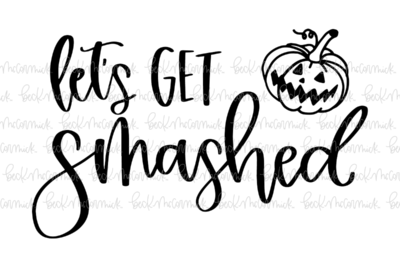 let's GET
smashed